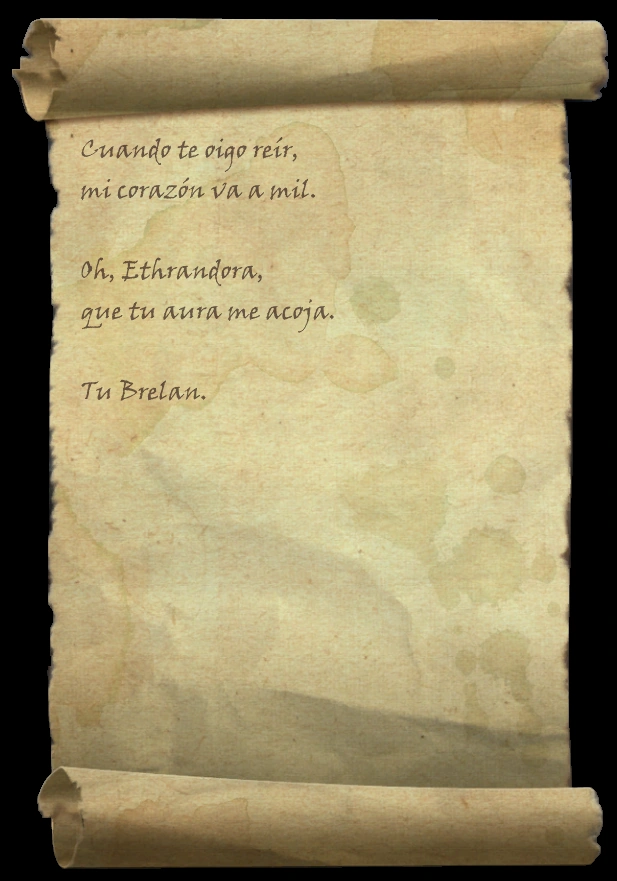 Cuando te oigo reír,
mi corazón va a mil.
Oh, Ethrandora,
que tu aura me acoja.
Tu Brelan.